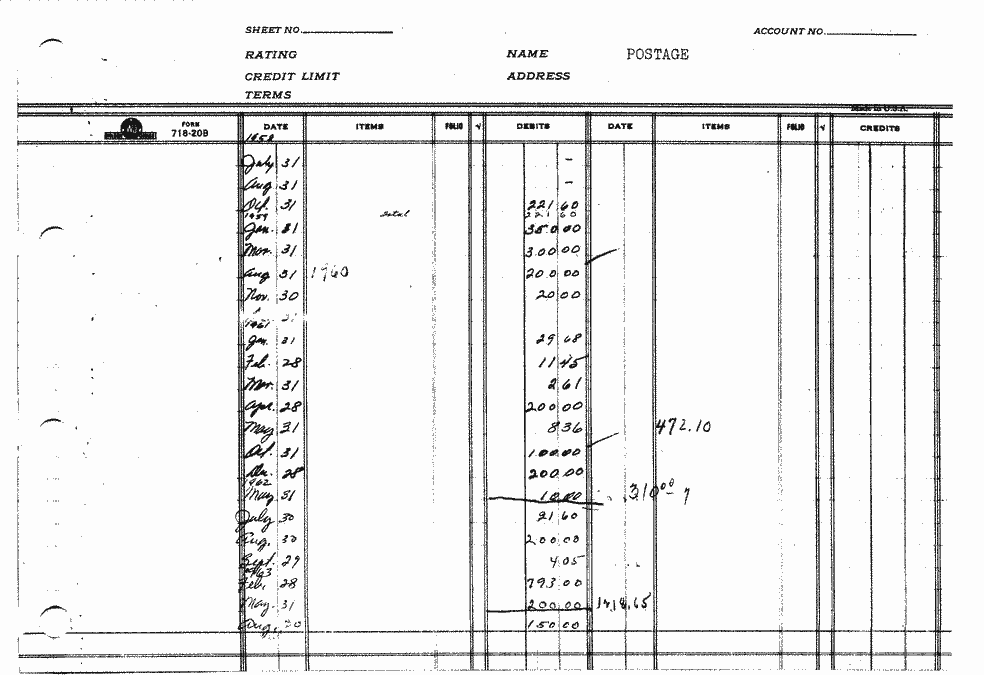 SHEET NO. ACCOUNT NO.
RATING NAME POSTAGE
CREDIT LIMIT ADDRESS
TERMS
Made in U.S.A.
FORM 718-20B DATE ITEMS FOLIO √ DEBITS DATE ITEMS FOLIO √ CREDITS
1958
July 31 -
Aug 31 -
Oct. 31 221 60
1959 total 221 60
Jan. 31 35 0.00
Mar. 31 300 00
Aug 31 1960 200 00
Nov. 30 20 00
31
1961
Jan. 31 29 68
Feb. 28 11 45
Mar. 31 2 61
Apr. 28 200 00
May 31 8 36 472.10
Oct. 31 100.00
Dec. 28 200.00
1962
May 31 10.00 310 00
July 30 21 60
Aug. 30 200.00
Sept. 29 4 05
1963
Feb. 28 793 00
May. 31 200.00 1218.65
Aug. 30 150.00